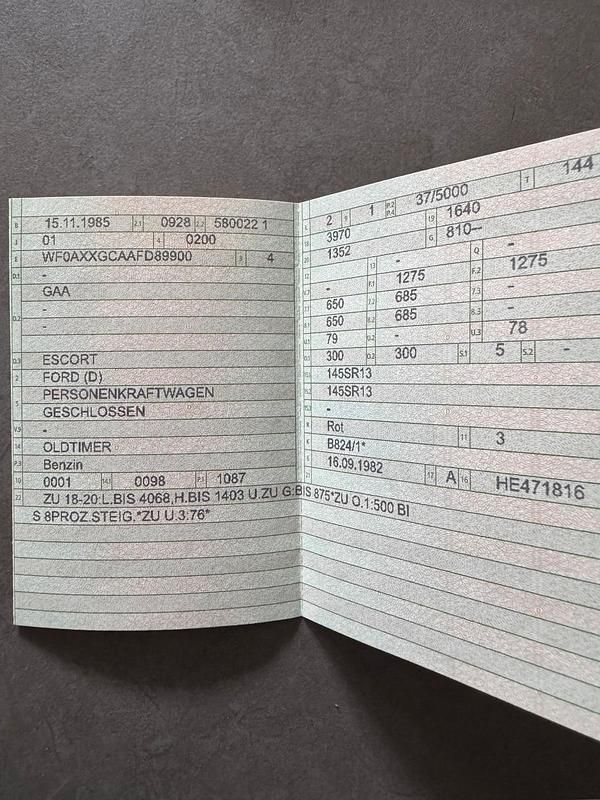 B 15.11.1985 2.1 0928 2.2 580022 1
J 01 4 0200
E WF0AXXGCAAFD89900 3 4
D.1 -
GAA
D.2 -
-
D.3 ESCORT
2 FORD (D)
5 PERSONENKRAFTWAGEN
GESCHLOSSEN
V.9 -
14 OLDTIMER
P.3 Benzin
10 0001 14.1 0098 P.1 1087
22 ZU 18-20:L.BIS 4068,H.BIS 1403 U.ZU G:BIS 875*ZU O.1:500 BI
S 8PROZ.STEIG.*ZU U.3:76*
L 2 9 1 P.2 P.4 37/5000 T 144
18 3970 19 1640
20 1352 G 810--
12 - 13 - Q -
- F.1 1275 F.2 1275
7.1 650 7.2 685 7.3 -
8.1 650 8.2 685 8.3 -
U.1 79 U.2 - U.3 78
O.1 300 O.2 300 S.1 5 S.2 -
15.1 145SR13
15.2 145SR13
15.3 -
R Rot 11 3
K B824/1*
6 16.09.1982 17 A 16 HE471816